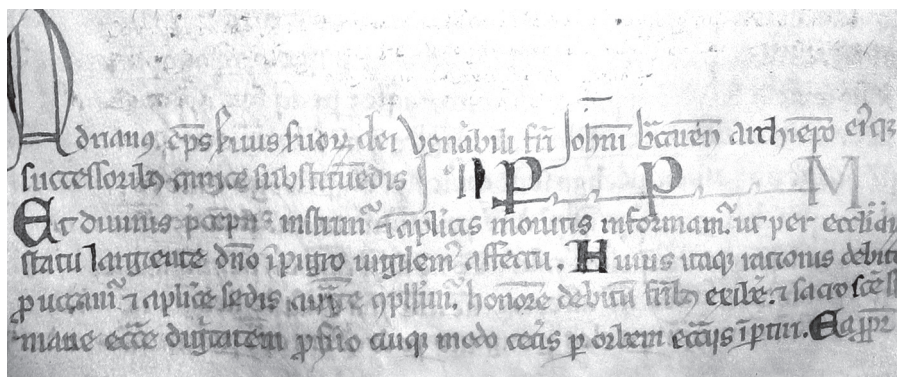 Adrianꝰ ep̄s seruus seruoꝝ dei Venabili fr̄i Johī bracaren̄ archiep̄o eiꝰqꝫ
successoribꝫ canonice substituēdis IN P P M
Et diuinis p̄cept' instruim̄ ⁊ aplicis monitis informam̄. ut per eccl̄iaꝝ
statu largiente dn̄o īpigro uigilem̄ affectu. Huius itaq rationis debito
ꝓuocam̄ ⁊ aplice sedis ꝯpellim̄. honorē debitū fr̄ibꝫ exibe ⁊ sacro sc̄e
mane ecc̄e dignitatem ꝓ suo cuiqꝫ modo cet̄is ꝑ orbem ecc̄iis īpr̄tiri. Ea ꝓpt